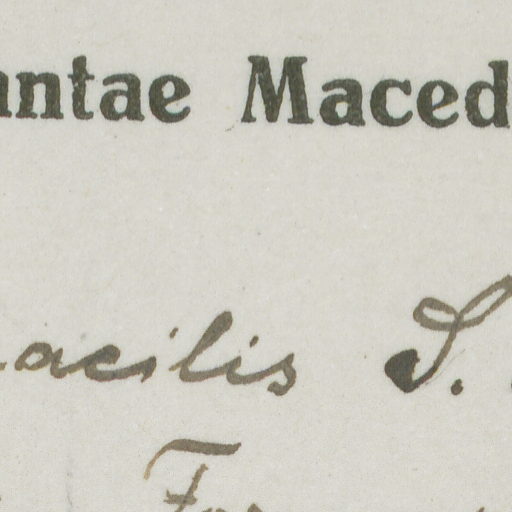 antae Maced
acilis S.
For